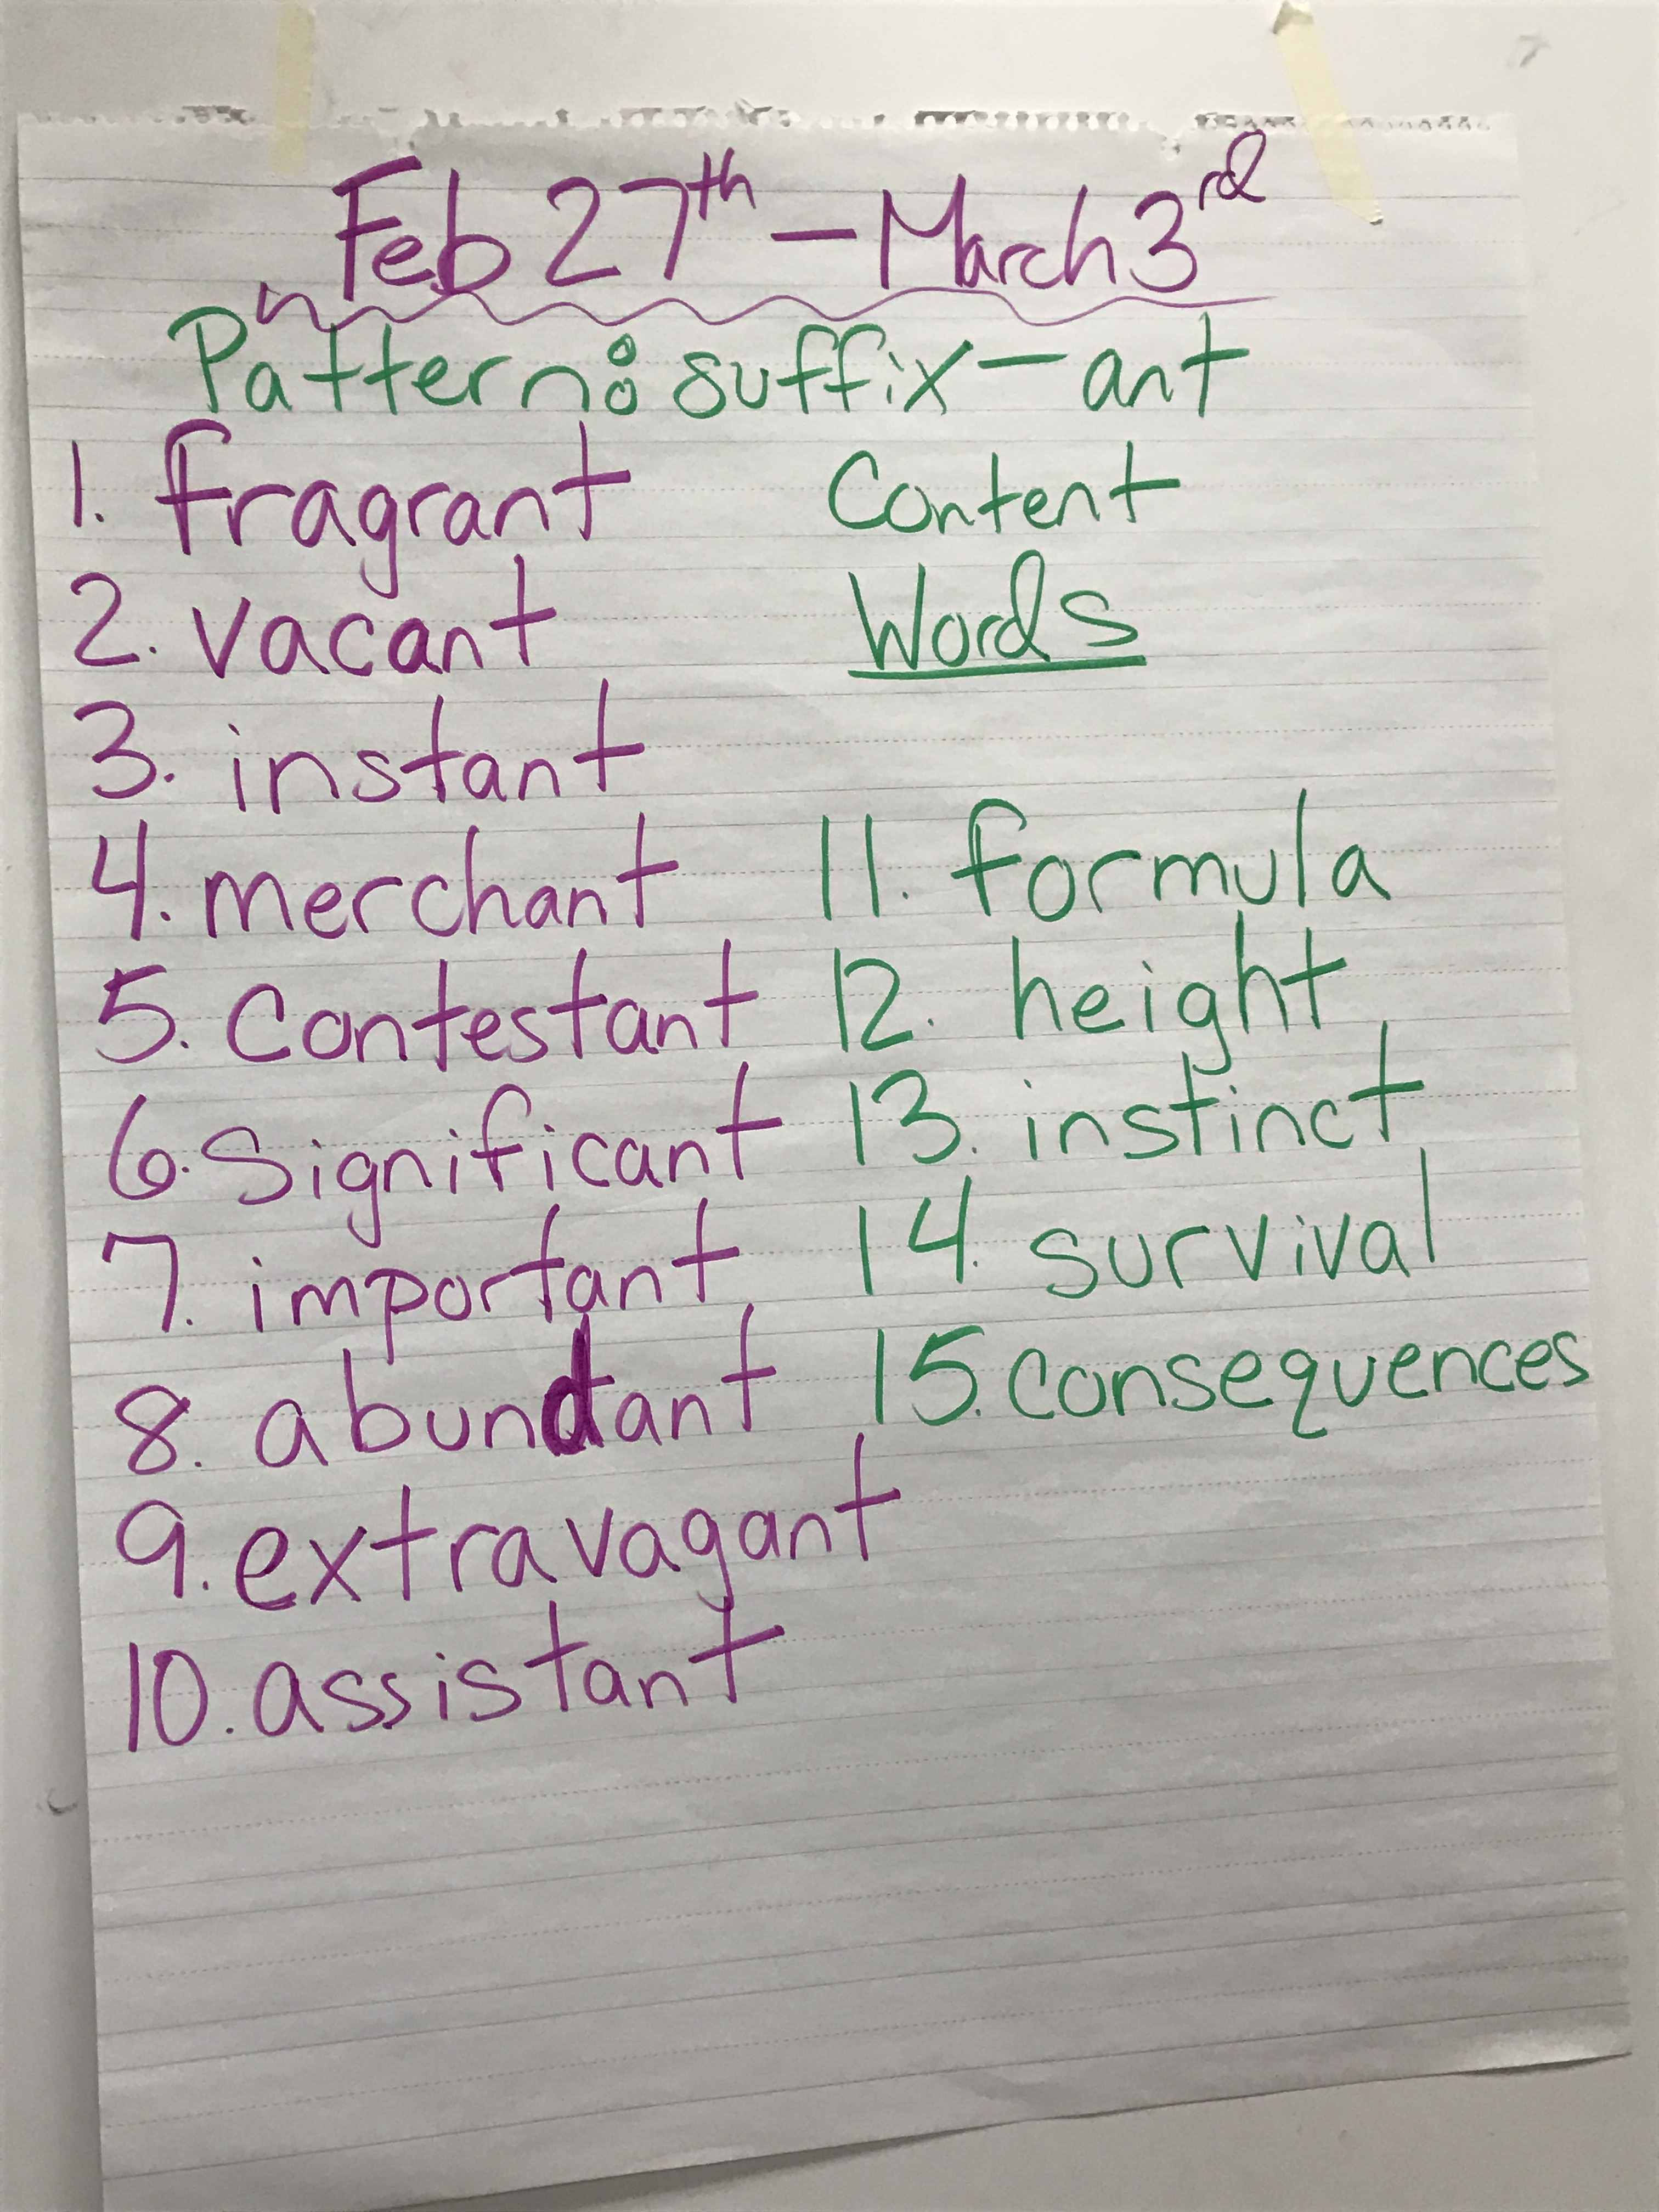 Feb 27th - March 3rd
Pattern: suffix - ant
1. fragrant
2. vacant
3. instant
4. merchant
5. Contestant
6. Significant
7. important
8. abundant
9. extravagant
10. assistant
Content
Words
11. formula
12. height
13. instinct
14. survival
15. Consequences